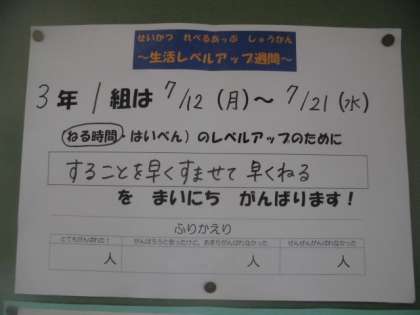 せいかつ れべるあっぷ しゅうかん
～生活レベルアップ週間～
3年 1組は 7/12（月）～ 7/21（水）
（ねる時間・はいべん）のレベルアップのために
することを早くすませて 早くねる
を まいにち がんばります！
ふりかえり
とてもがんばれた！ がんばろうと思ったけど、あまりがんばれなかった ぜんぜんがんばれなかった
人 人 人